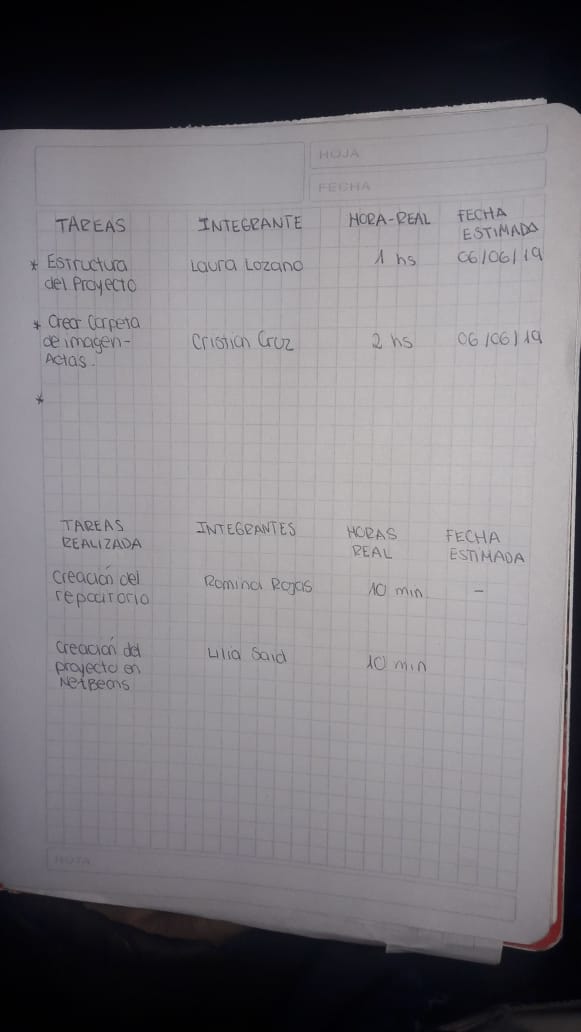 HOJA
FECHA
TAREAS INTEGRANTE HORA-REAL FECHA ESTIMADA
* Estructura del Proyecto Laura Lozano 1 hs 06/06/19
* Crear Carpeta de imagen- Actas. Cristian Cruz 2 hs 06/06/19
*
TAREAS REALIZADA INTEGRANTES HORAS REAL FECHA ESTIMADA
Creación del repocitorio Romina Rojas 10 min -
Creación del proyecto en NetBeans Lilia Said 10 min
NOTA